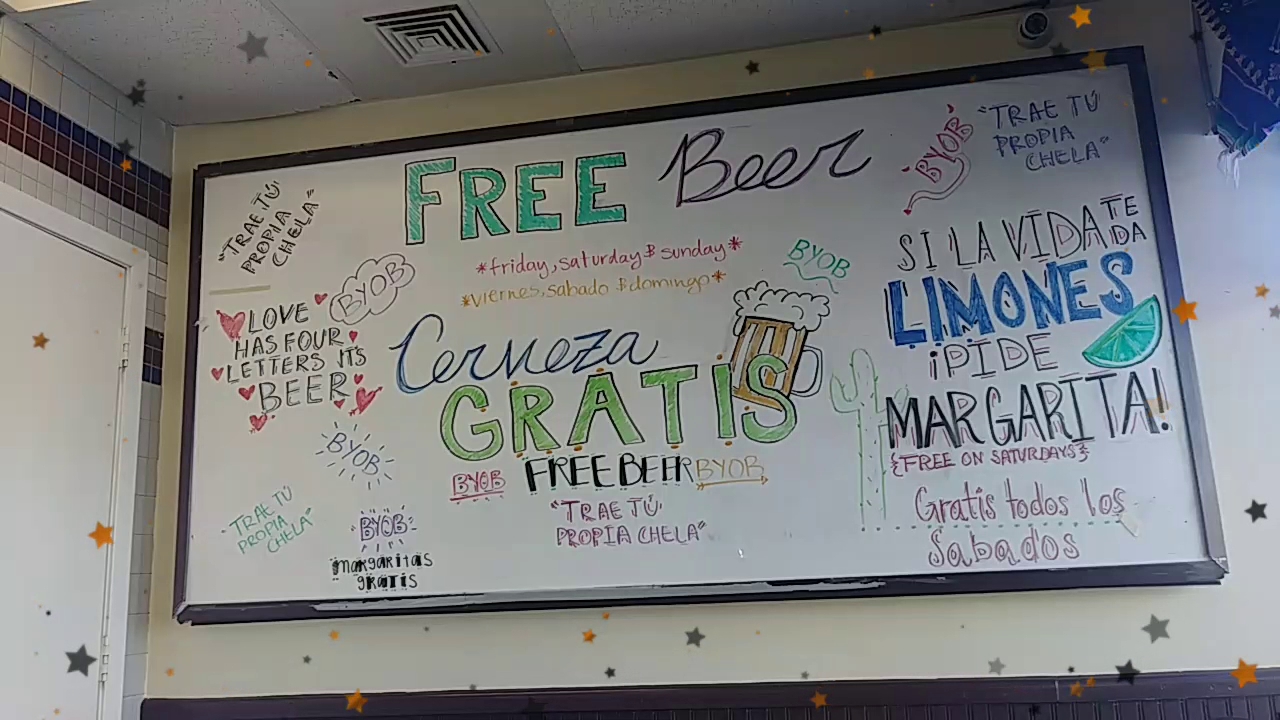 FREE Beer
*friday, saturday & sunday*
*viernes, sabado & domingo*
Cerveza
GRATIS
BYOB FREE BEER BYOB
"TRAE TÚ
PROPIA CHELA"
"TRAE TÚ
PROPIA
CHELA"
BYOB
LOVE
HAS FOUR
LETTERS ITS
BEER
BYOB
"TRAE TÚ
PROPIA
CHELA"
BYOB
margaritas
gratis
BYOB
BYOB
"TRAE TÚ
PROPIA
CHELA"
SI LA VIDA TE
DA
LIMONES
¡PIDE
MARGARITA!
{FREE ON SATURDAYS}
Gratis todos los
Sabados